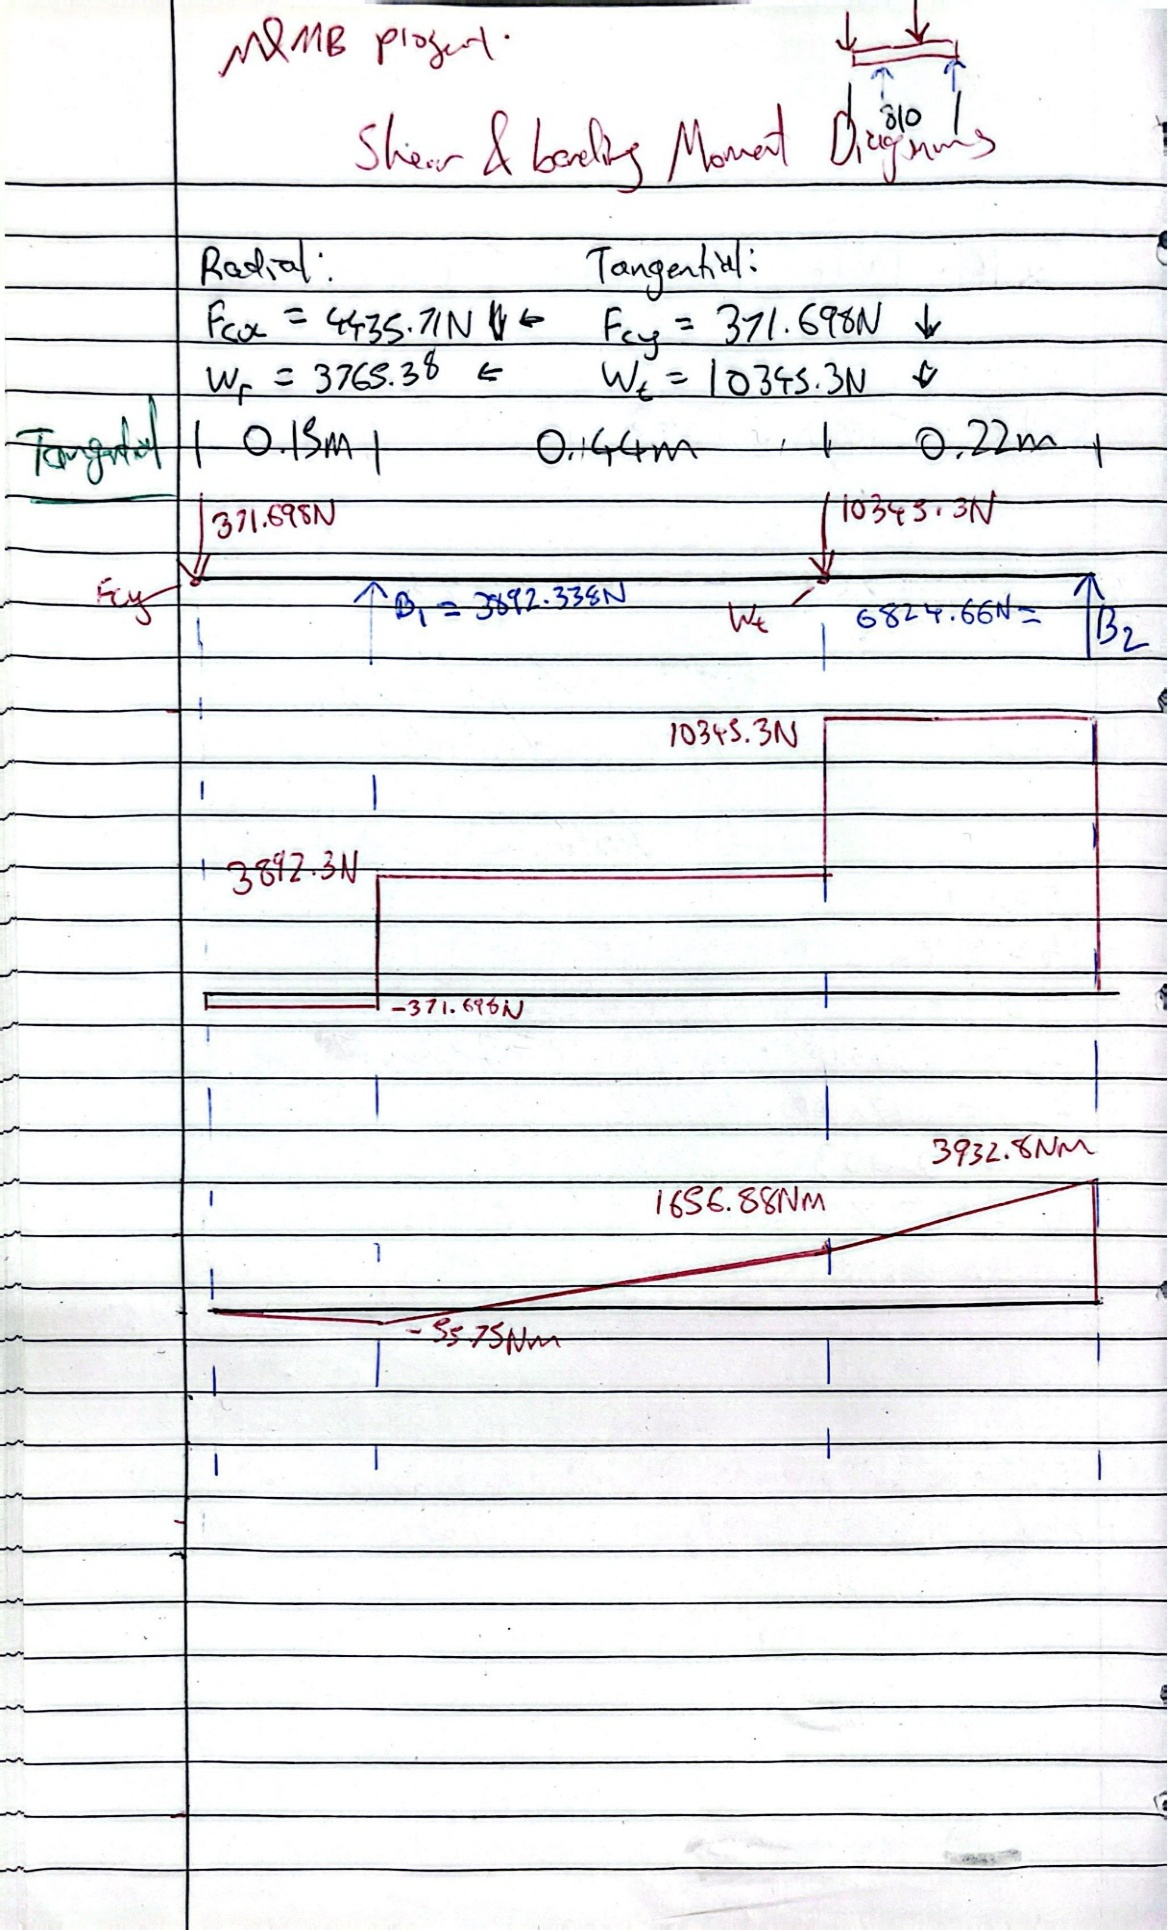 MDMB project.
810
Shear & bending Moment Diagrams
Radial: Tangential:
Fcx = 4435.71N ← Fcy = 371.698N ↓
Wr = 3765.38 ← Wt = 10345.3N ↓
Tangential 0.15m 0.44m 0.22m
371.698N 10345.3N
Fcy B1 = 3892.338N Wt 6824.66N = B2
10345.3N
3892.3N
-371.698N
3932.8Nm
1656.88Nm
-55.75Nm